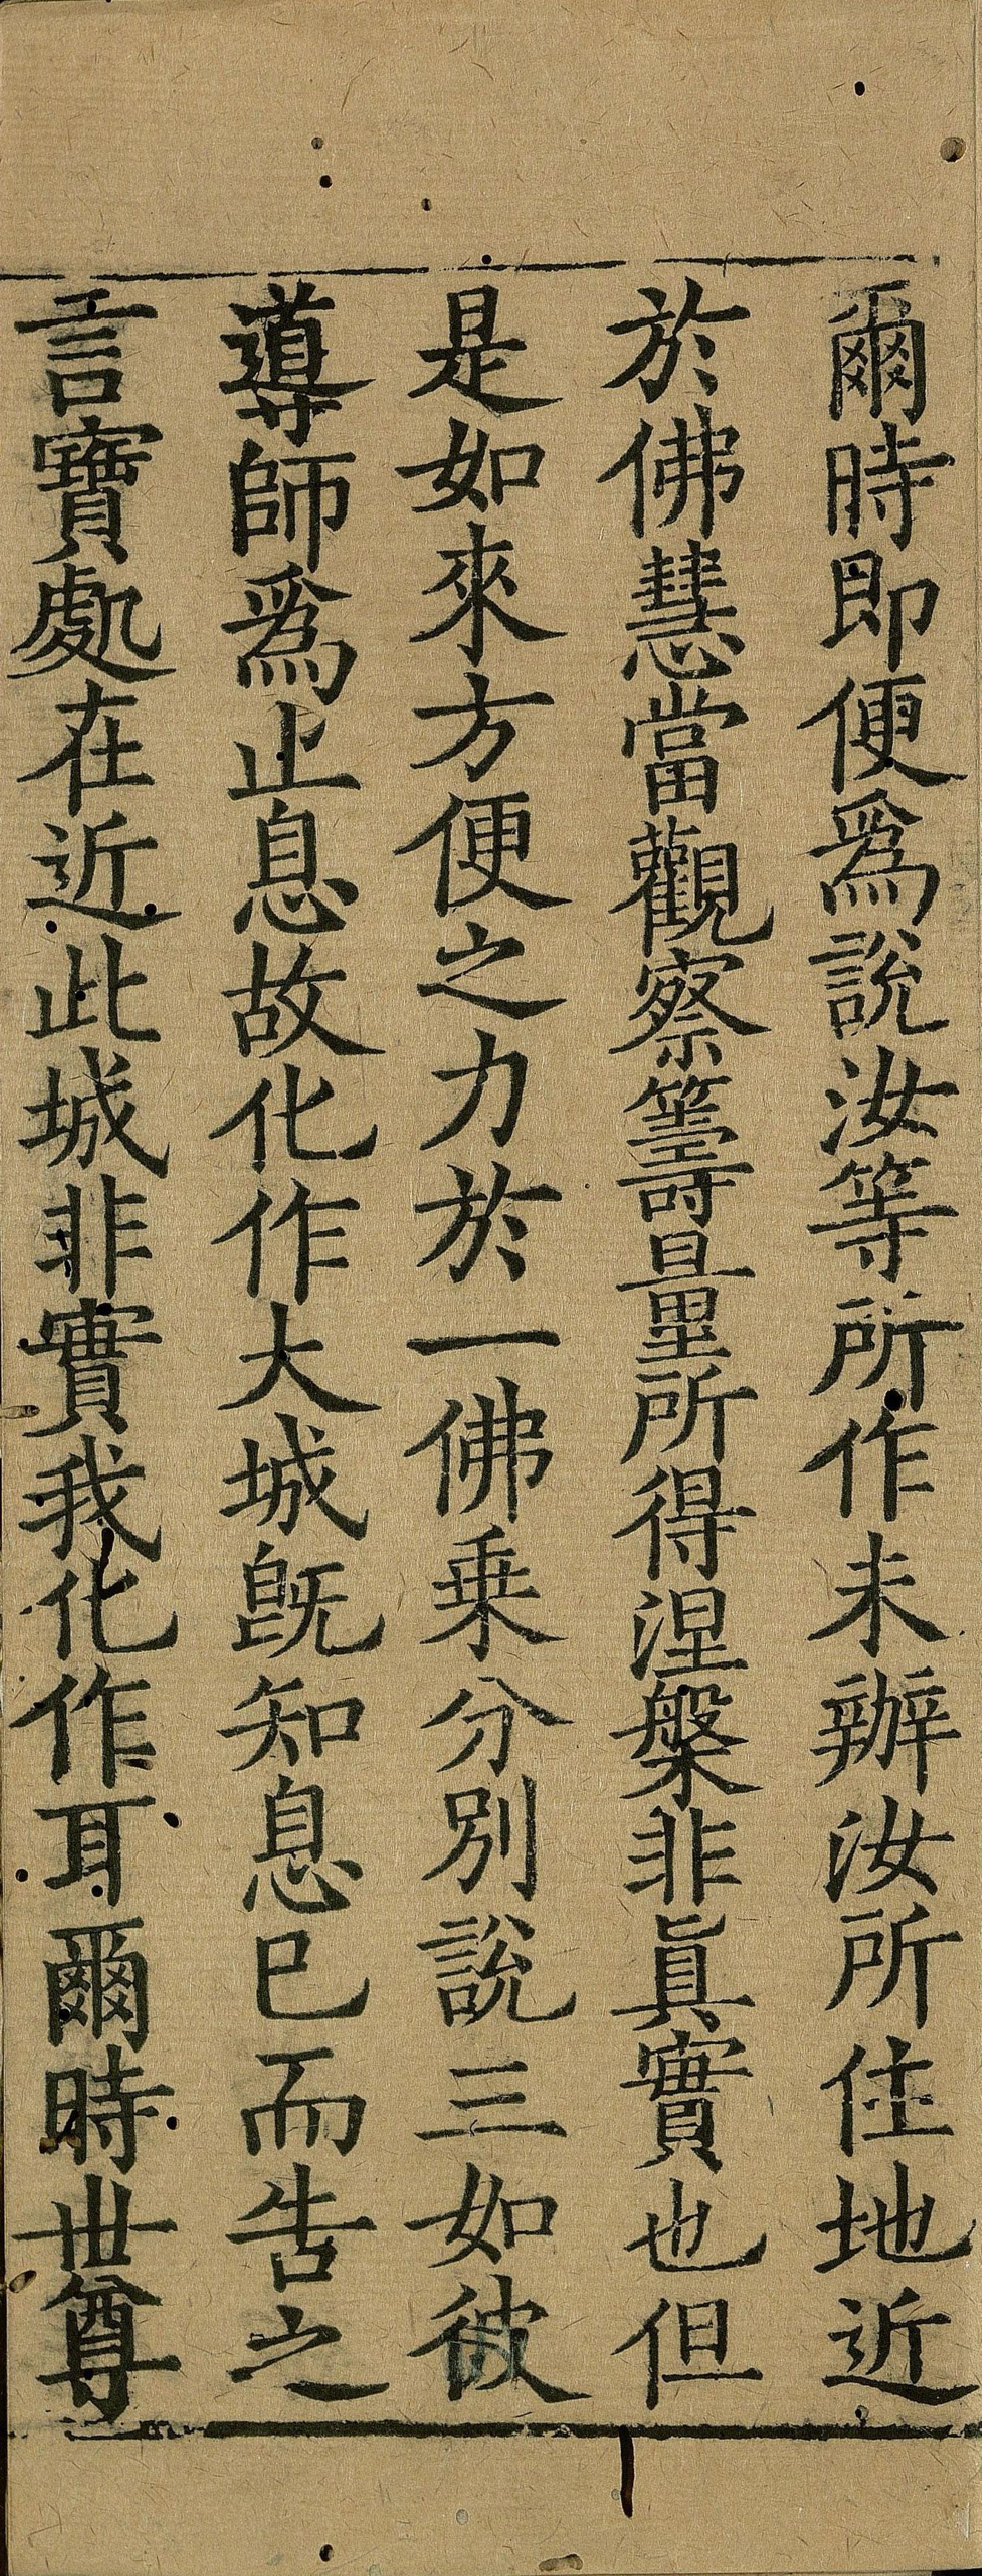 爾時即便爲說汝等所作未辦汝所住地近
於佛慧當觀察籌量所得涅槃非眞實也但
是如來方便之力於一佛乗分別說三如彼
導師爲止息故化作大城旣知息已而告之
言寶處在近此城非實我化作耳爾時世尊